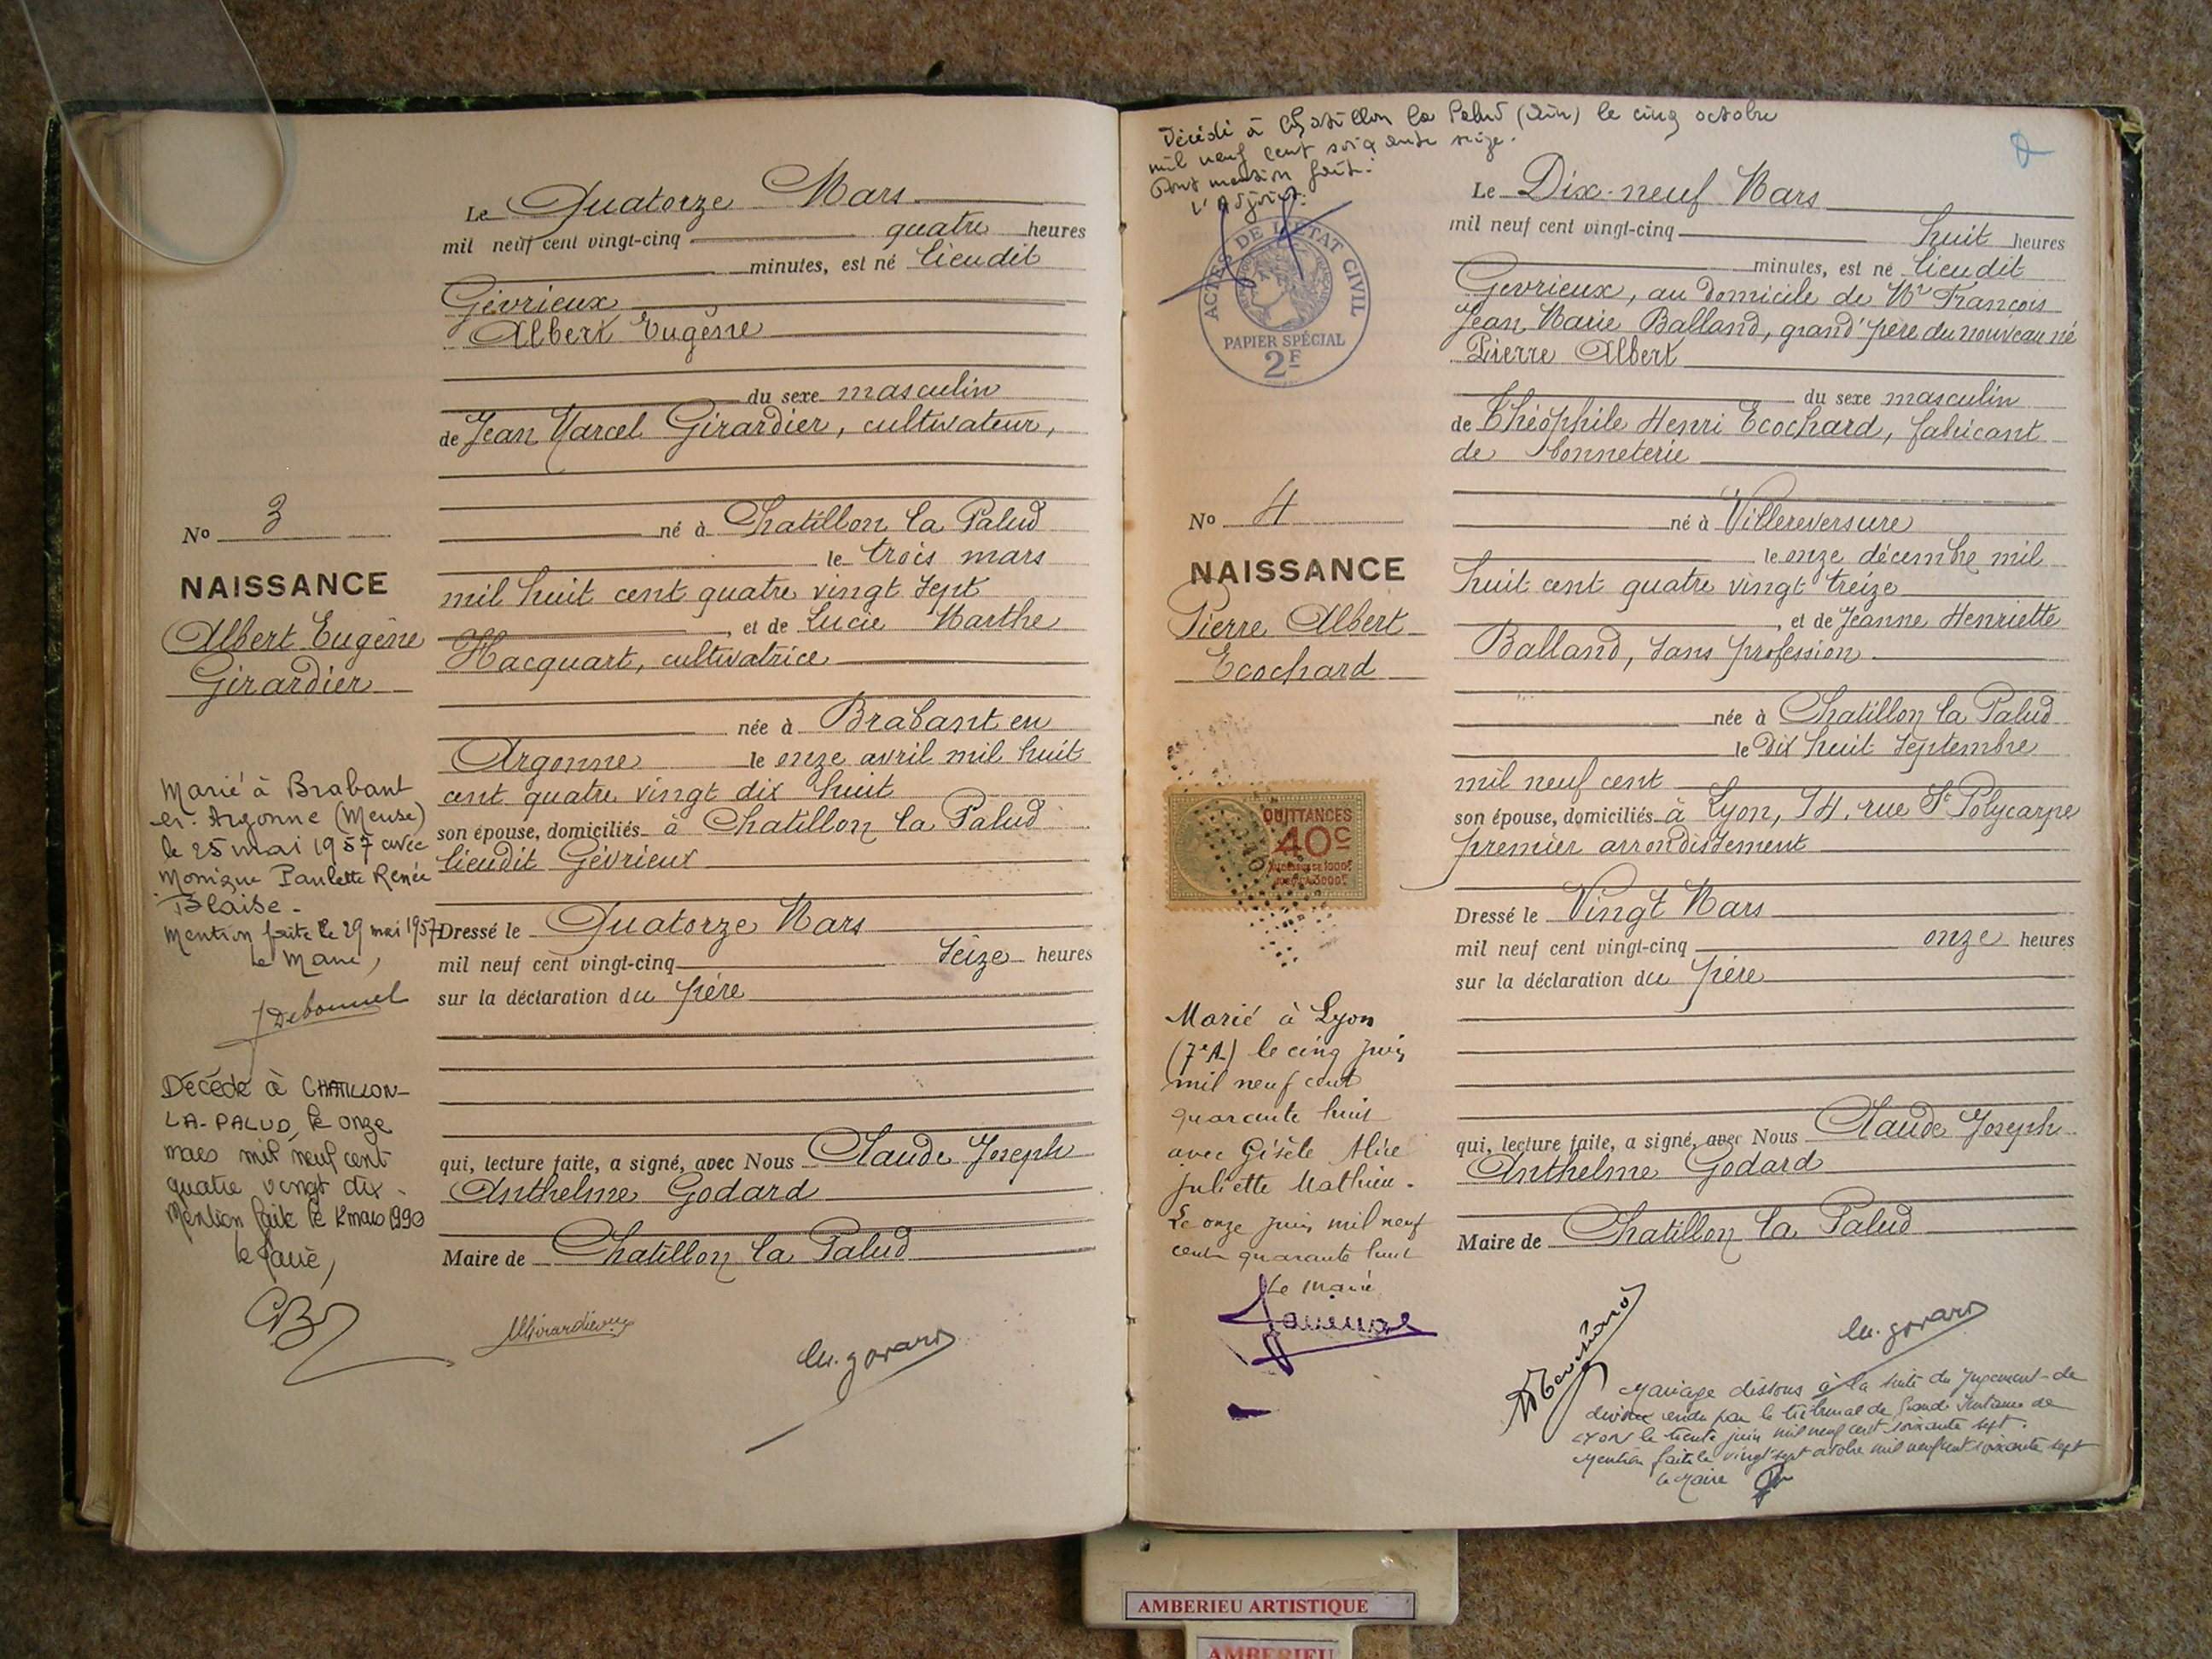 Le Quatorze Mars
mil neuf cent vingt-cinq quatre heures
minutes, est né lieudit
Gévrieux
Albert Eugène
du sexe masculin
de Jean Marcel Girardier, cultivateur,
No 3
né à Chatillon la Palud
le trois mars
NAISSANCE
mil huit cent quatre vingt sept
Albert Eugène
Girardier
, et de Lucie Marthe
Hacquart, cultivatrice
née à Brabant en
Argonne le onze avril mil huit
cent quatre vingt dix huit
son épouse, domiciliés à Chatillon la Palud
lieudit Gévrieux
Marié à Brabant
en Argonne (Meuse)
le 25 mai 1957 avec
Monique Paulette Renée
Blaise.
Mention faite le 29 mai 1957
le Maire,
J Debonnel
Dressé le Quatorze Mars
mil neuf cent vingt-cinq seize heures
sur la déclaration du père
Décédé à CHATILLON-
LA-PALUD, le onze
mars mil neuf cent
quatre vingt dix.
Mention faite le 12 mars 1990
le Maire,
qui, lecture faite, a signé, avec Nous Claude Joseph
Anthelme Godard
Maire de Chatillon la Palud
MGirardier
Cu. Godard
Décédé à Chatillon la Palud (Ain) le cinq octobre
mil neuf cent soixante seize.
Dont mention faite.
L'Adjoint:
ACTES DE L'ETAT CIVIL
PAPIER SPÉCIAL
2F
Le Dix-neuf Mars
mil neuf cent vingt-cinq huit heures
minutes, est né lieudit
Gevrieux, au domicile de Mr François
Jean Marie Balland, grand'père du nouveau né
Pierre Albert
du sexe masculin
de Théophile Henri Ecochard, fabricant
de bonneterie
No 4
né à Villereversure
le onze décembre mil
NAISSANCE
huit cent quatre vingt treize
Pierre Albert
Ecochard
, et de Jeanne Henriette
Balland, sans profession
née à Chatillon la Palud
le dix huit septembre
mil neuf cent
son épouse, domiciliés à Lyon, 14, rue St Polycarpe
premier arrondissement
QUITTANCES
40c
Dressé le Vingt Mars
mil neuf cent vingt-cinq onze heures
sur la déclaration du père
Marié à Lyon
(7eA) le cinq juin
mil neuf cent
quarante huit
avec Gisèle Alice
Juliette Mathieu.
Le onze juin mil neuf
cent quarante huit
Le maire
qui, lecture faite, a signé, avec Nous Claude Joseph
Anthelme Godard
Maire de Chatillon la Palud
Cu. Godard
Mariage dissous à la suite du Jugement de
divorce rendu par le tribunal de Grande Instance de
LYON le trente juin mil neuf cent soixante sept.
Mention faite le vingt sept octobre mil neuf cent soixante sept
le Maire
AMBERIEU ARTISTIQUE
AMBERIEU